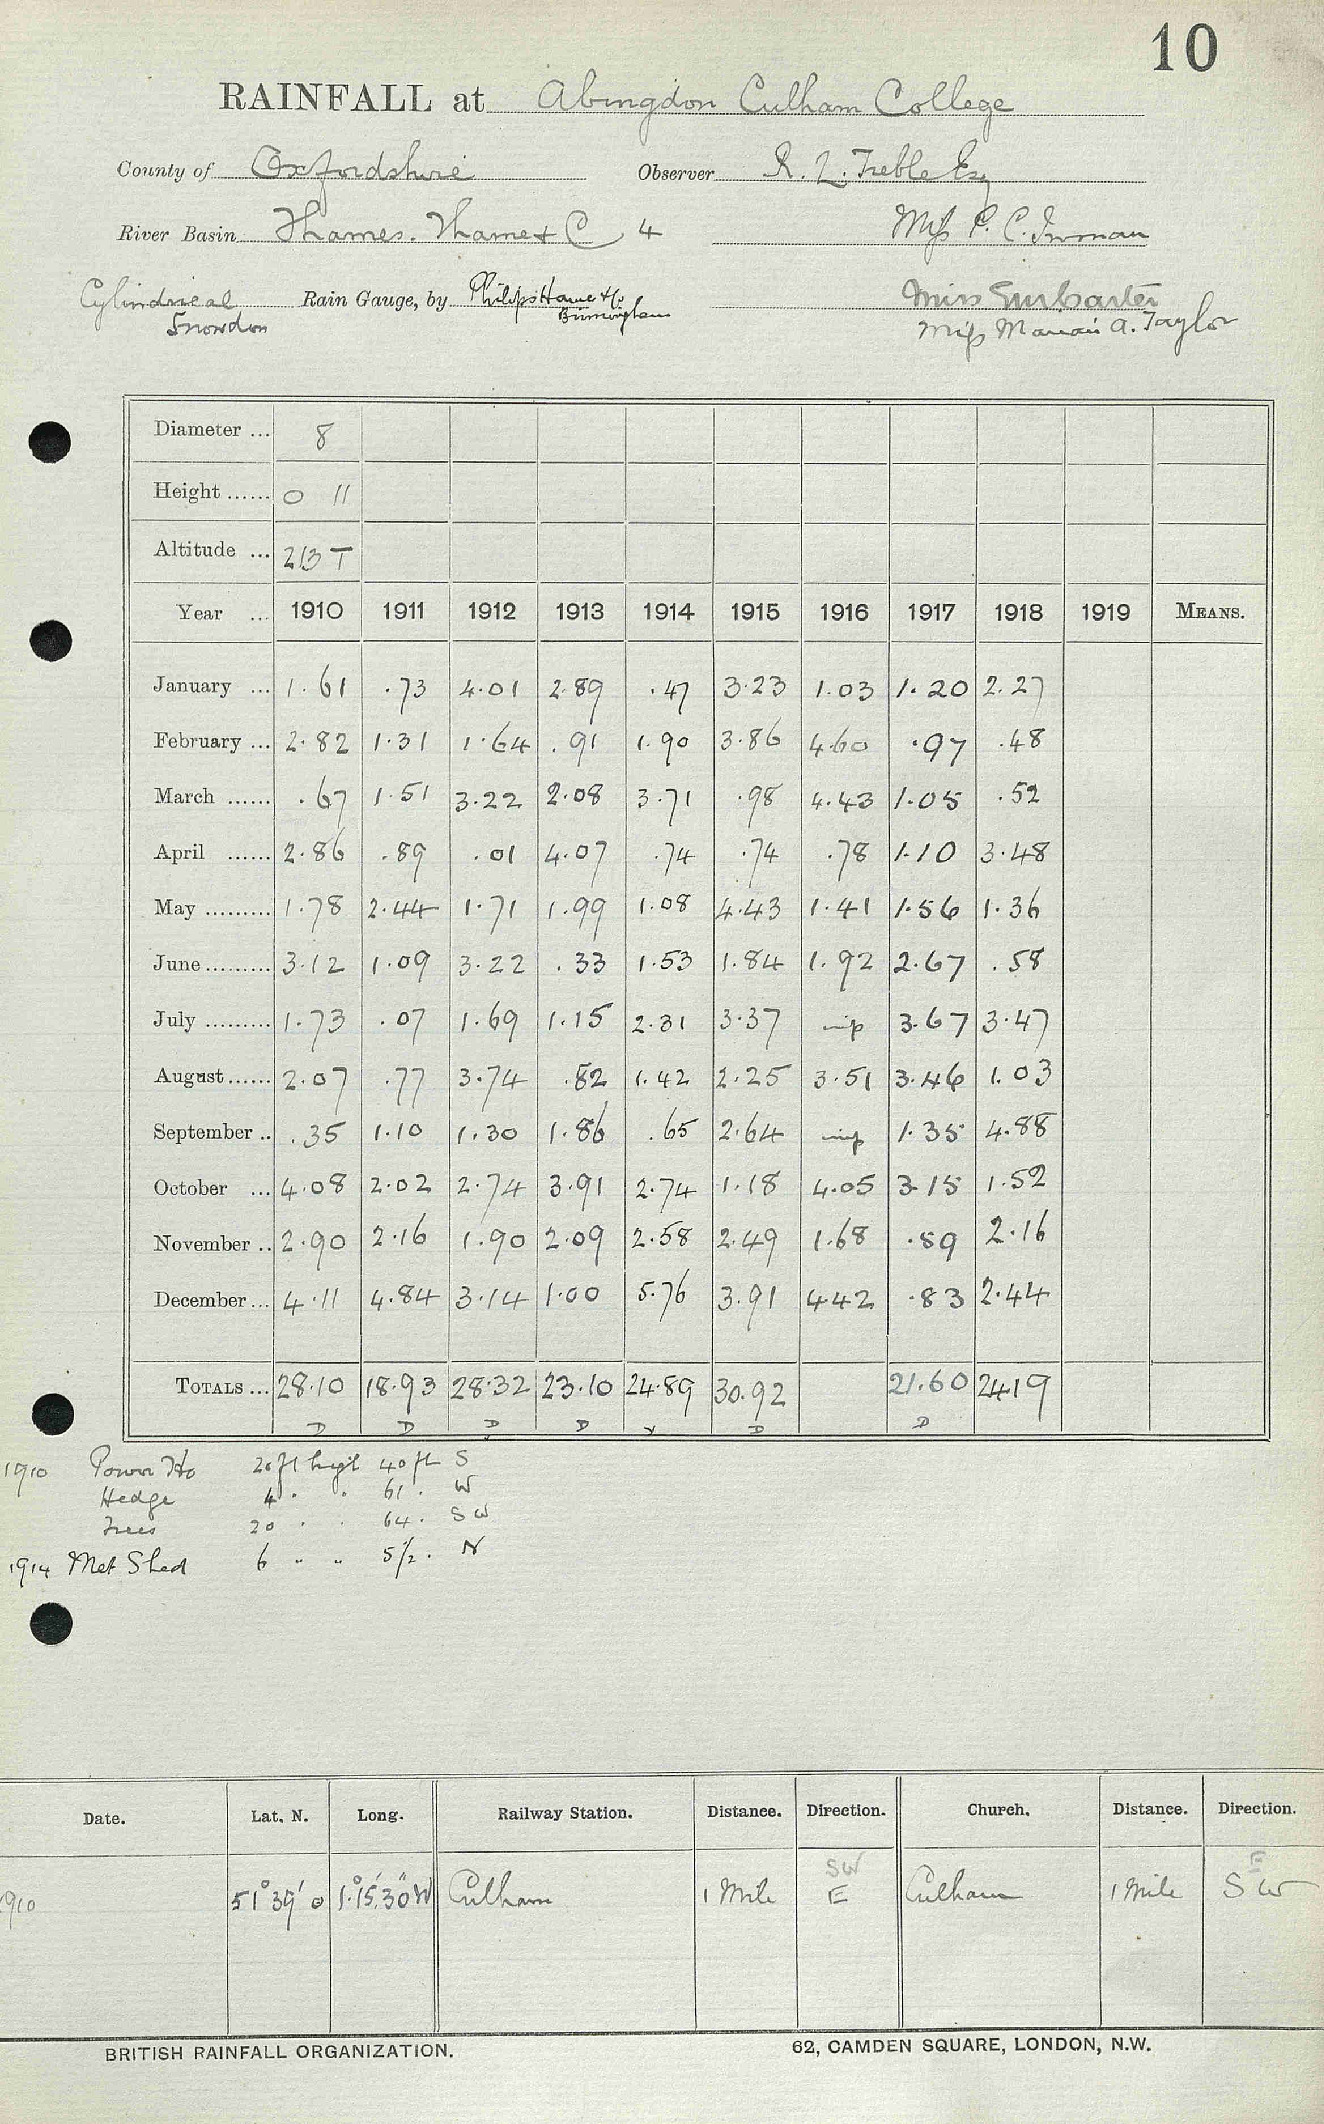 10
RAINFALL at Abingdon Culham College
County of Oxfordshire Observer R. L. Treble Esq
River Basin Thames. Thame & C 4 Miss P. C. Inman
Cylindrical Rain Gauge, by Philip Harris & Co Miss
Snowdon Birmingham Miss A. Taylor
Diameter ... 8
Height ...... 0 11
Altitude ... 213 T
Year ... 1910 1911 1912 1913 1914 1915 1916 1917 1918 1919 MEANS.
January ... 1.61 .73 4.01 2.89 .47 3.23 1.03 1.20 2.27
February ... 2.82 1.31 1.64 .91 1.90 3.86 4.60 .97 .48
March ...... .67 1.51 3.22 2.08 3.71 .98 4.43 1.05 .52
April ...... 2.86 .89 .01 4.07 .74 .74 .78 1.10 3.48
May ......... 1.78 2.44 1.71 1.99 1.08 4.43 1.41 1.56 1.36
June ......... 3.12 1.09 3.22 .33 1.53 1.84 1.92 2.67 .58
July ......... 1.73 .07 1.69 1.15 2.31 3.37 3.67 3.47
August ...... 2.07 .77 3.74 .82 1.42 2.25 3.51 3.46 1.03
September .. .35 1.10 1.30 1.86 .65 2.64 1.35 4.88
October ... 4.08 2.02 2.74 3.91 2.74 1.18 4.05 3.15 1.52
November .. 2.90 2.16 1.90 2.09 2.58 2.49 1.68 .59 2.16
December ... 4.11 4.84 3.14 1.00 5.76 3.91 4.42 .83 2.44
TOTALS ... 28.10 18.93 28.32 23.10 24.89 30.92 21.60 24.19
D D D D D D
1910 Power Ho 20 ft high 40 ft S
Hedge 4 " " 61 " W
Trees 20 " " 64 " SW
1914 Met Shed 6 " " 5½ " N
Date. Lat. N. Long. Railway Station. Distance. Direction. Church. Distance. Direction.
SW E
1910 51° 39' 0 1° 15' 30" W Culham 1 Mile E Culham 1 Mile SW
BRITISH RAINFALL ORGANIZATION. 62, CAMDEN SQUARE, LONDON, N.W.